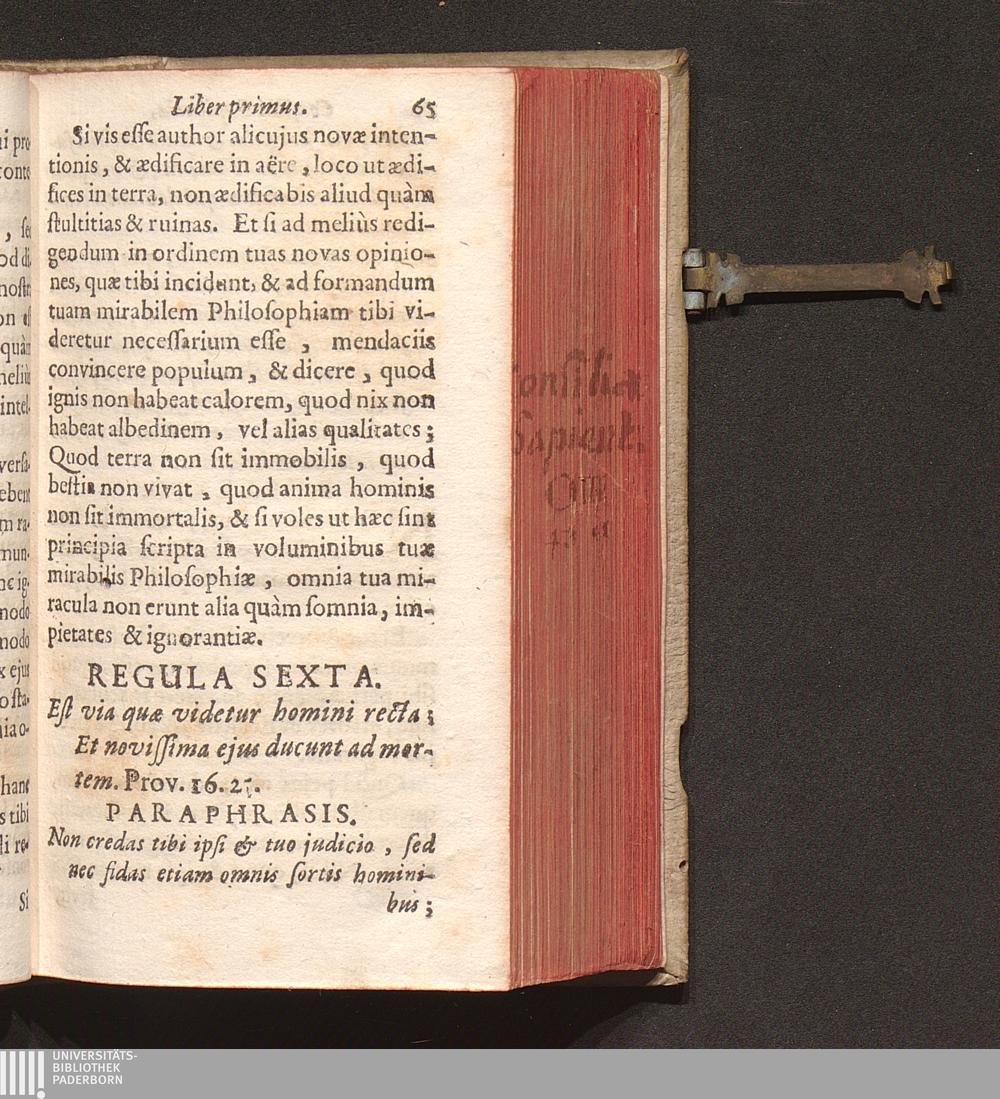 Liber primus. 65
Si vis esse author alicujus novæ inten-
tionis, & ædificare in aëre, loco ut ædi-
fices in terra, non ædificabis aliud quàm
stultitias & ruinas. Et si ad meliùs redi-
gendum in ordinem tuas novas opinio-
nes, quæ tibi incidunt, & ad formandum
tuam mirabilem Philosophiam tibi vi-
deretur necessarium esse, mendaciis
convincere populum, & dicere, quod
ignis non habeat calorem, quod nix non
habeat albedinem, vel alias qualitates;
Quod terra non sit immobilis, quod
bestia non vivat, quod anima hominis
non sit immortalis, & si voles ut hæc sint
principia scripta in voluminibus tuæ
mirabilis Philosophiæ, omnia tua mi-
racula non erunt alia quàm somnia, im-
pietates & ignorantiæ.
REGULA SEXTA.
Est via quæ videtur homini recta;
Et novissima ejus ducunt ad mor-
tem. Prov. 16.
PARAPHRASIS.
Non credas tibi ipsi & tuo judicio, sed
nec fidas etiam omnis sortis homini-
bus;
onsilia
Sapient:
UNIVERSITÄTS-
BIBLIOTHEK
PADERBORN